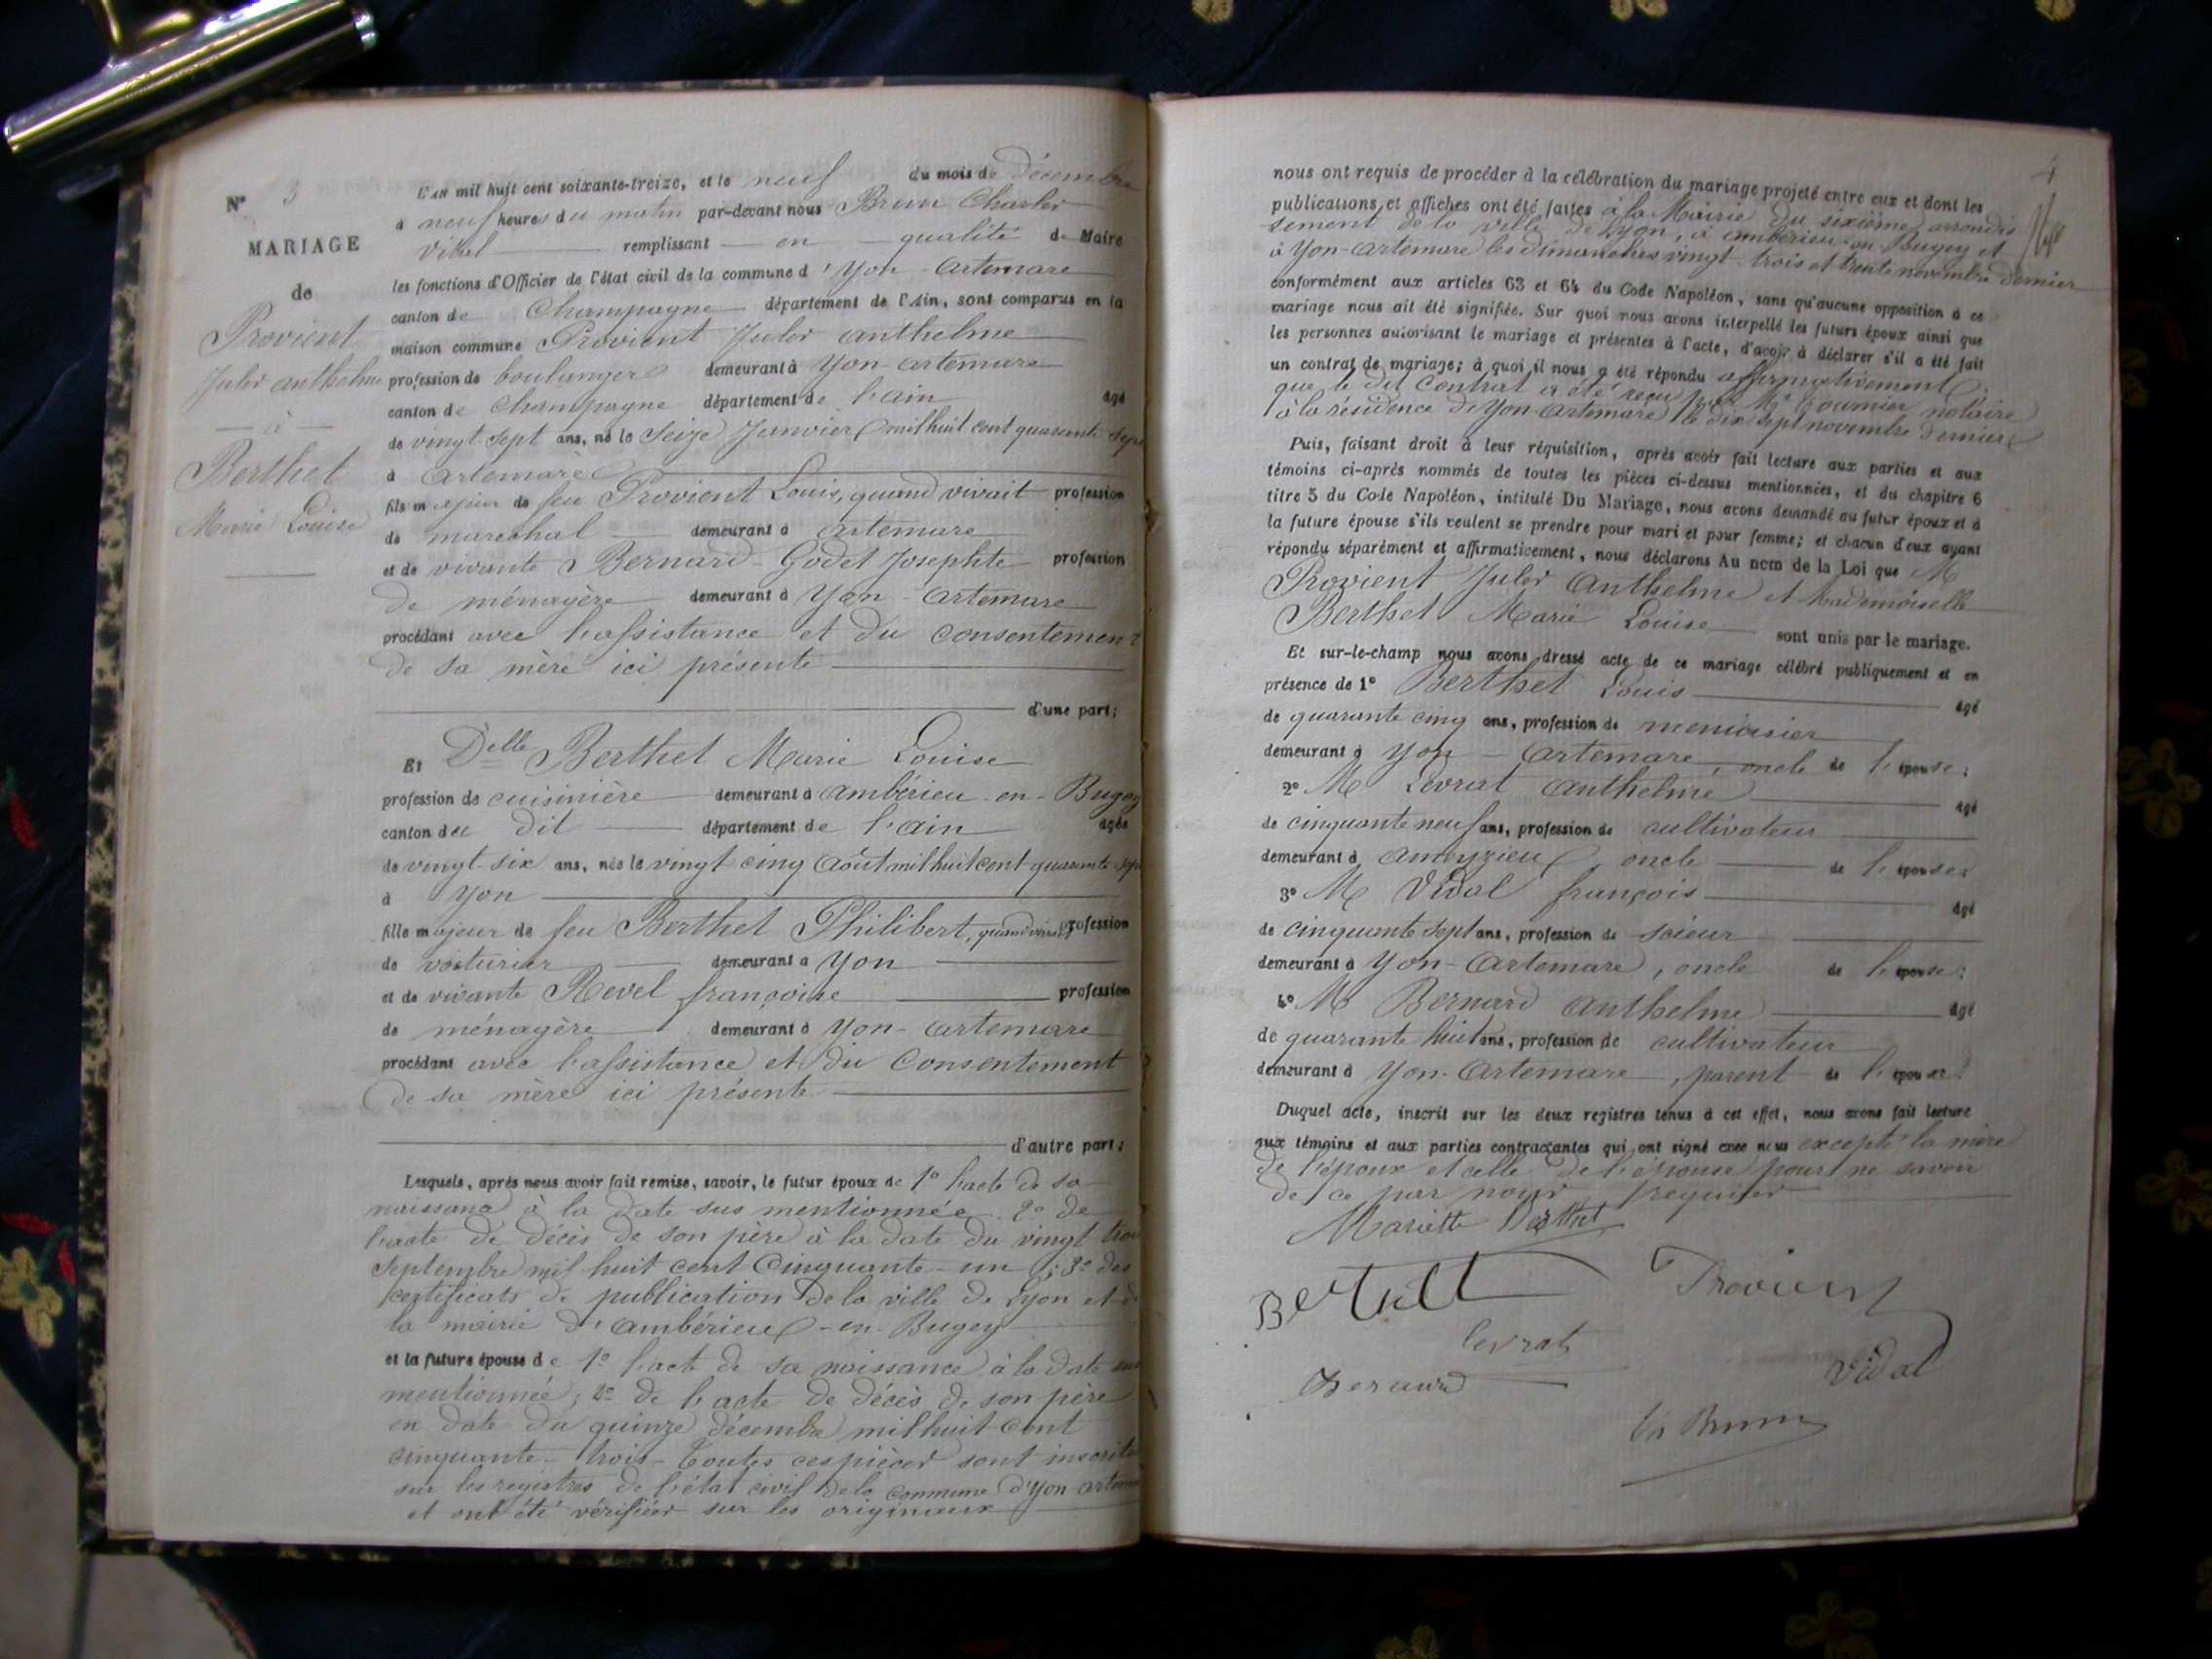 N° 3
MARIAGE
de
Provient
Jules anthelme
à
Berthet
Marie Louise
L'an mil huit cent soixante-treize, et le neuf du mois de Décembre
à neuf heures du matin par-devant nous Brun Charles
Vital remplissant en qualité de Maire
les fonctions d'Officier de l'état civil de la commune d'Yon-artemare
canton de Champagne département de l'Ain, sont comparus en la
maison commune Provient Jules anthelme
profession de boulanger demeurant à Yon-artemare
canton de Champagne département de l'ain âgé
de vingt-sept ans, né le Seize Janvier mil huit cent quarante sept
à artemare
fils majeur de feu Provient Louis, quand vivait profession
de maréchal demeurant à artemare
et de vivante Bernard-Godet Josephte profession
de ménagère demeurant à Yon-artemare
procédant avec l'assistance et du consentement
de sa mère ici présente
d'une part;
Et Delle Berthet Marie Louise
profession de cuisinière demeurant à ambérieu-en-Bugey
canton du dit département de l'ain âgée
de vingt-six ans, née le vingt cinq août mil huit cent quarante sept
à Yon
fille majeur de feu Berthet Philibert, quand vivait profession
de voiturier demeurant à Yon
et de vivante Revel françoise profession
de ménagère demeurant à Yon-artemare
procédant avec l'assistance et du Consentement
de sa mère ici présente
d'autre part;
Lesquels, après nous avoir fait remise, savoir, le futur époux de 1° l'acte de sa
naissance à la date sus mentionnée 2° de
l'acte de décès de son père à la date du vingt trois
Septembre mil huit cent Cinquante-un; 3° des
certificats de publication de la ville de Lyon et de
la mairie d'ambérieu-en-Bugey
et la future épouse de 1° l'acte de sa naissance à la date sus
mentionnée; 2° de l'acte de décès de son père
en date du quinze décembre mil huit cent
cinquante-trois-Toutes ces pièces sont inscrites
sur les registres de l'état civil de la commune d'Yon artemare
et ont été vérifiées sur les originaux
4
nous ont requis de procéder à la célébration du mariage projeté entre eux et dont les
publications et affiches ont été faites à la Mairie du sixième arrondis
sement de la ville de Lyon, à ambérieu-en-Bugey et
à Yon-artemare les dimanches vingt-trois et trente novembre dernier
conformément aux articles 63 et 64 du Code Napoléon, sans qu'aucune opposition à ce
mariage nous ait été signifiée. Sur quoi nous avons interpellé les futurs époux ainsi que
les personnes autorisant le mariage et présentes à l'acte, d'avoir à déclarer s'il a été fait
un contrat de mariage; à quoi il nous a été répondu affirmativement
que le dit Contrat a été reçu par Me fournier notaire
à la résidence de Yon-artemare le dix sept novembre dernier
Puis, faisant droit à leur réquisition, après avoir fait lecture aux parties et aux
témoins ci-après nommés de toutes les pièces ci-dessus mentionnées, et du chapitre 6
titre 5 du Code Napoléon, intitulé Du Mariage, nous avons demandé au futur époux et à
la future épouse s'ils veulent se prendre pour mari et pour femme; et chacun d'eux ayant
répondu séparément et affirmativement, nous déclarons Au nom de la Loi que M
Provient Jules Anthelme et Mademoiselle
Berthet Marie Louise sont unis par le mariage.
Et sur-le-champ nous avons dressé acte de ce mariage célébré publiquement et en
présence de 1° Berthet Louis âgé
de quarante cinq ans, profession de menuisier
demeurant à Yon-artemare, oncle de l'épouse;
2° M Levrat anthelme âgé
de cinquante neuf ans, profession de cultivateur
demeurant à ameyzieu, oncle de l'épouse
3° M Vidal françois âgé
de cinquante sept ans, profession de scieur
demeurant à Yon-Artemare, oncle de l'épouse;
4° M Bernard anthelme âgé
de quarante huit ans, profession de cultivateur
demeurant à Yon-Artemare, parent de l'époux
Duquel acte, inscrit sur les deux registres tenus à cet effet, nous avons fait lecture
aux témoins et aux parties contractantes qui ont signé avec nous excepté la mère
de l'époux et celle de l'épouse pour ne savoir
de ce par nous requises
Mariette Berthet
Provient
Levrat
Bernard
Vidal
Ch Brun